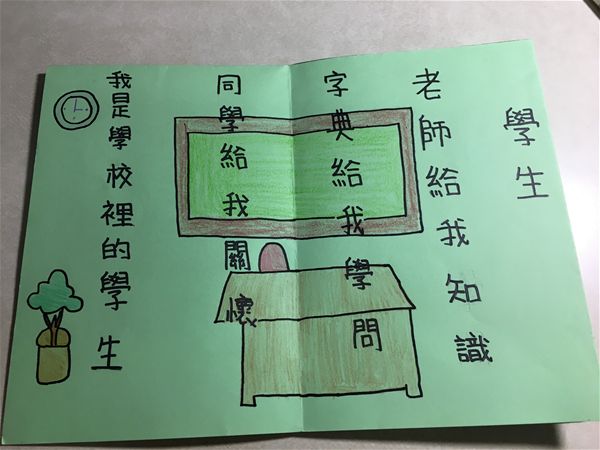 學生
老師給我知識
字典給我學問
同學給我關懷
我是學校裡的學生